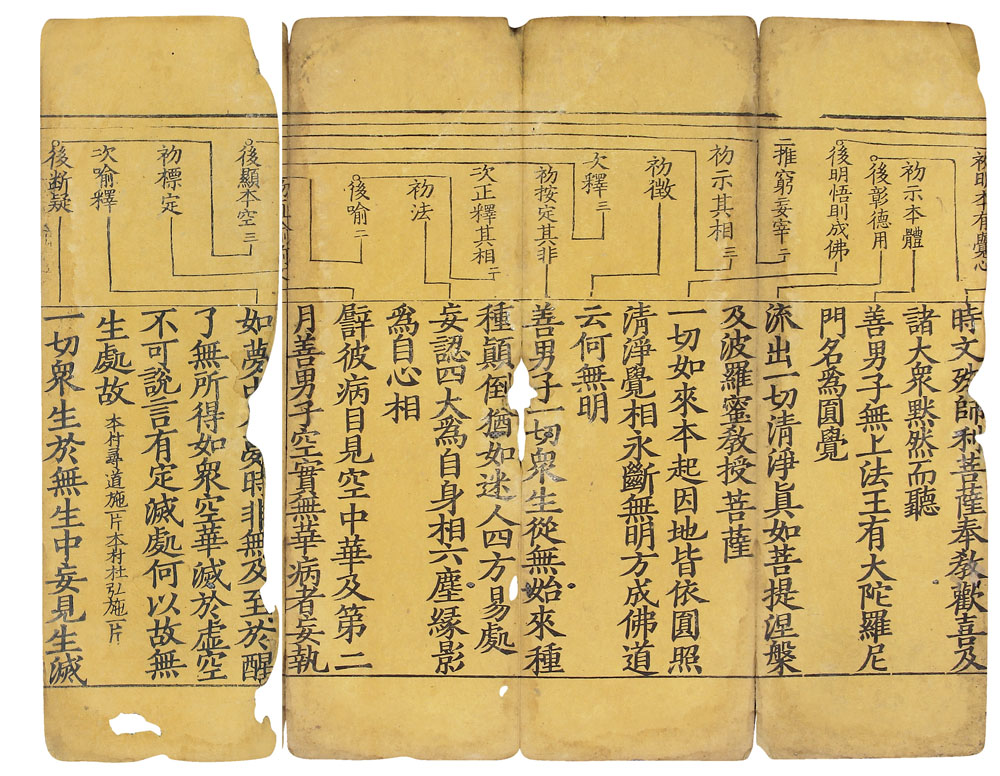 初明本有覺心
初示本體
後彰德用
後明悟則成佛
二推窮妄宰二
初示其相三
初徵
次釋三
初按定其非
次正釋其相二
初法
後喻二
後顯本空三
初標定
次喻釋
後断疑
時文殊師利菩薩奉敎歡喜及
諸大衆黙然而聽
善男子無上法王有大陀羅尼
門名爲圓覺
流出一切清淨眞如菩提涅槃
及波羅蜜敎授菩薩
一切如來本起因地皆依圓照
清淨覺相永斷無明方成佛道
云何無明
善男子一切衆生從無始來種
種顚倒猶如迷人四方易處
妄認四大爲自身相六塵緣影
爲自心相
譬彼病目見空中華及第二
月善男子空實無華病者妄執
如夢時非無及至於醒
了無所得如衆空華滅於虛空
不可說言有定滅處何以故無
生處故 本村尋道施一片本村杜弘施一片
一切衆生於無生中妄見生滅